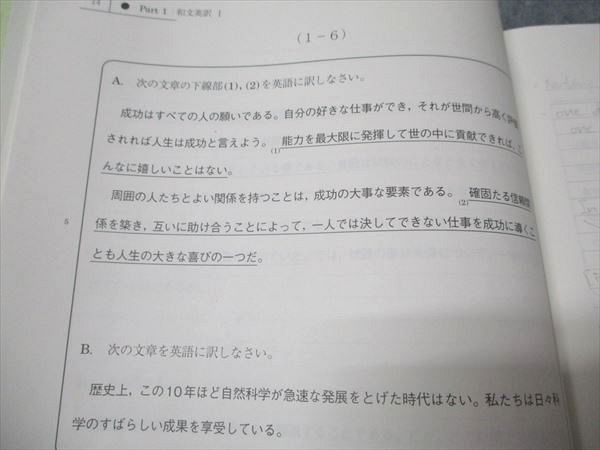 14 ● Part 1 和文英訳 I
(1-6)
A. 次の文章の下線部(1), (2)を英語に訳しなさい。
成功はすべての人の願いである。自分の好きな仕事ができ，それが世間から高く評価
されれば人生は成功と言えよう。(1)能力を最大限に発揮して世の中に貢献できれば，こ
んなに嬉しいことはない。
周囲の人たちとよい関係を持つことは，成功の大事な要素である。(2)確固たる信頼関
5 係を築き，互いに助け合うことによって，一人では決してできない仕事を成功に導くこ
とも人生の大きな喜びの一つだ。
B. 次の文章を英語に訳しなさい。
歴史上，この10年ほど自然科学が急速な発展をとげた時代はない。私たちは日々科
学のすばらしい成果を享受している。
one
one